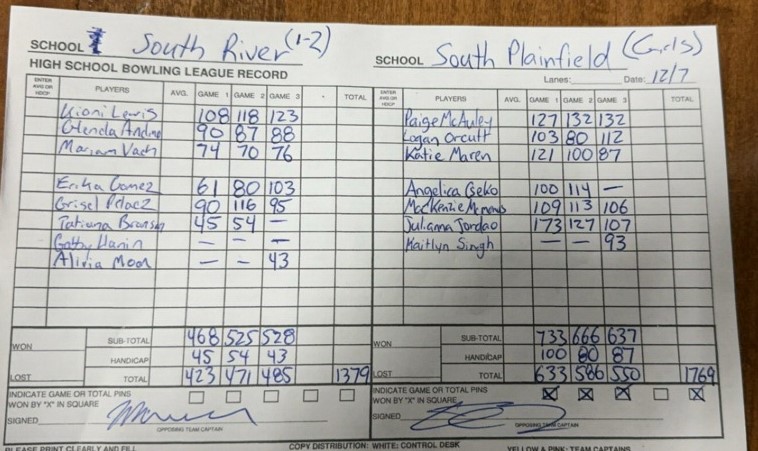 SCHOOL South River (1-2)
HIGH SCHOOL BOWLING LEAGUE RECORD
ENTER AVG OR HDCP PLAYERS AVG. GAME 1 GAME 2 GAME 3 TOTAL
Kioni Lewis 108 118 123
Glenda Andino 90 87 88
Mariam Vach 74 70 76
Erika Gomez 61 80 103
Grisel Pelaez 90 116 95
Tatiana Bronson 45 54 —
Gabby Hanin — — —
Alivia Moon — — 43
WON SUB-TOTAL 468 525 528
HANDICAP 45 54 43
LOST TOTAL 423 471 485 1379
INDICATE GAME OR TOTAL PINS
WON BY "X" IN SQUARE
SIGNED
OPPOSING TEAM CAPTAIN
PLEASE PRINT CLEARLY AND FILL
SCHOOL South Plainfield (Girls)
Lanes: Date: 12/7
ENTER AVG OR HDCP PLAYERS AVG. GAME 1 GAME 2 GAME 3 TOTAL
Paige McAuley 127 132 132
Logan Orcutt 103 80 112
Katie Maren 121 100 87
Angelica Cseko 100 114 —
MacKenzie 109 113 106
Julianna Jordao 173 127 107
Kaitlyn Singh — — 93
WON SUB-TOTAL 733 666 637
HANDICAP 100 80 87
LOST TOTAL 633 586 550 1769
INDICATE GAME OR TOTAL PINS
WON BY "X" IN SQUARE X X X X
SIGNED
OPPOSING TEAM CAPTAIN
COPY DISTRIBUTION: WHITE: CONTROL DESK YELLOW & PINK: TEAM CAPTAINS